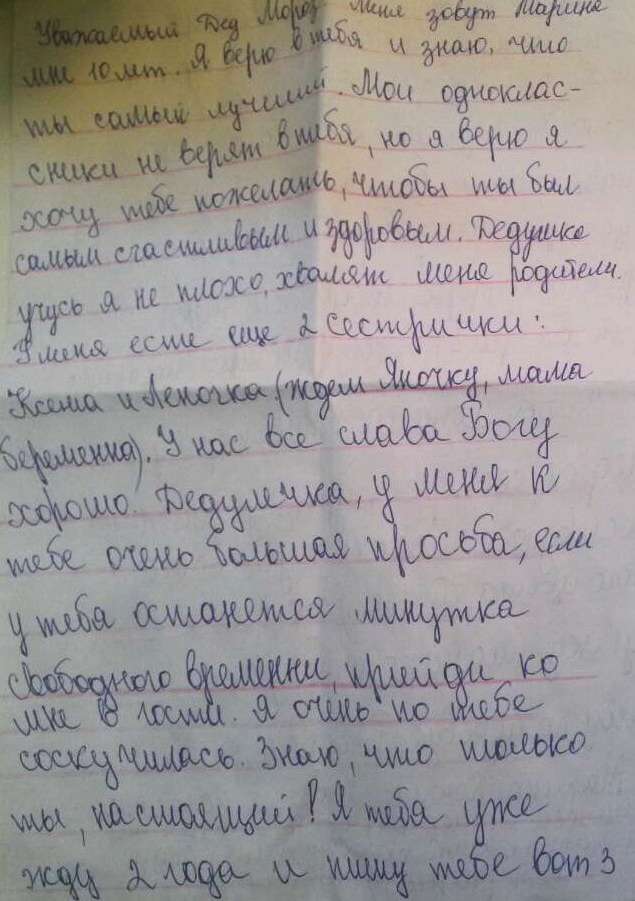 Уважаемый Дед Мороз меня зовут Марина
мне 10 лет. Я верю в тебя и знаю, что
ты самый лучший. Мои одноклас-
сники не верят в тибя, но я верю я
хочу тебе пожелать, чтобы ты был
самым счастливым и здоровым. Дедушка
учусь я не плохо, хвалят меня родители.
У меня есте еще 2 сестрички:
Ксеша и Леночка (ждем Яночку, мама
беременна). У нас все слава Богу
хорошо. Дедулечка, у меня к
тебе очень большая просьба, если
у тебя останется минутка
свободного временни, прийди ко
мне в гости. Я очень по тебе
соскучилась. Знаю, что только
ты, настоящий! Я тебя уже
жду 2 года и пишу тебе вот 3